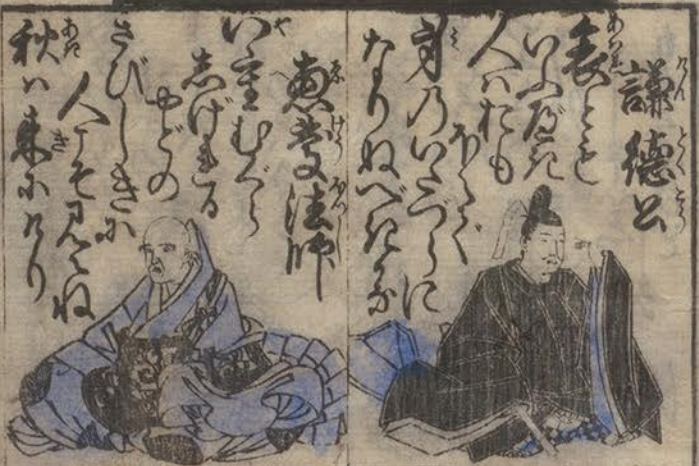 謙徳公
哀とも
いふべき
人はおも
ほえで
身のいたづらに
なりぬべきかな
恵慶法師
八重むぐら
しげれる
やどの
さびしきに
人こそ見えね
秋は来にけり